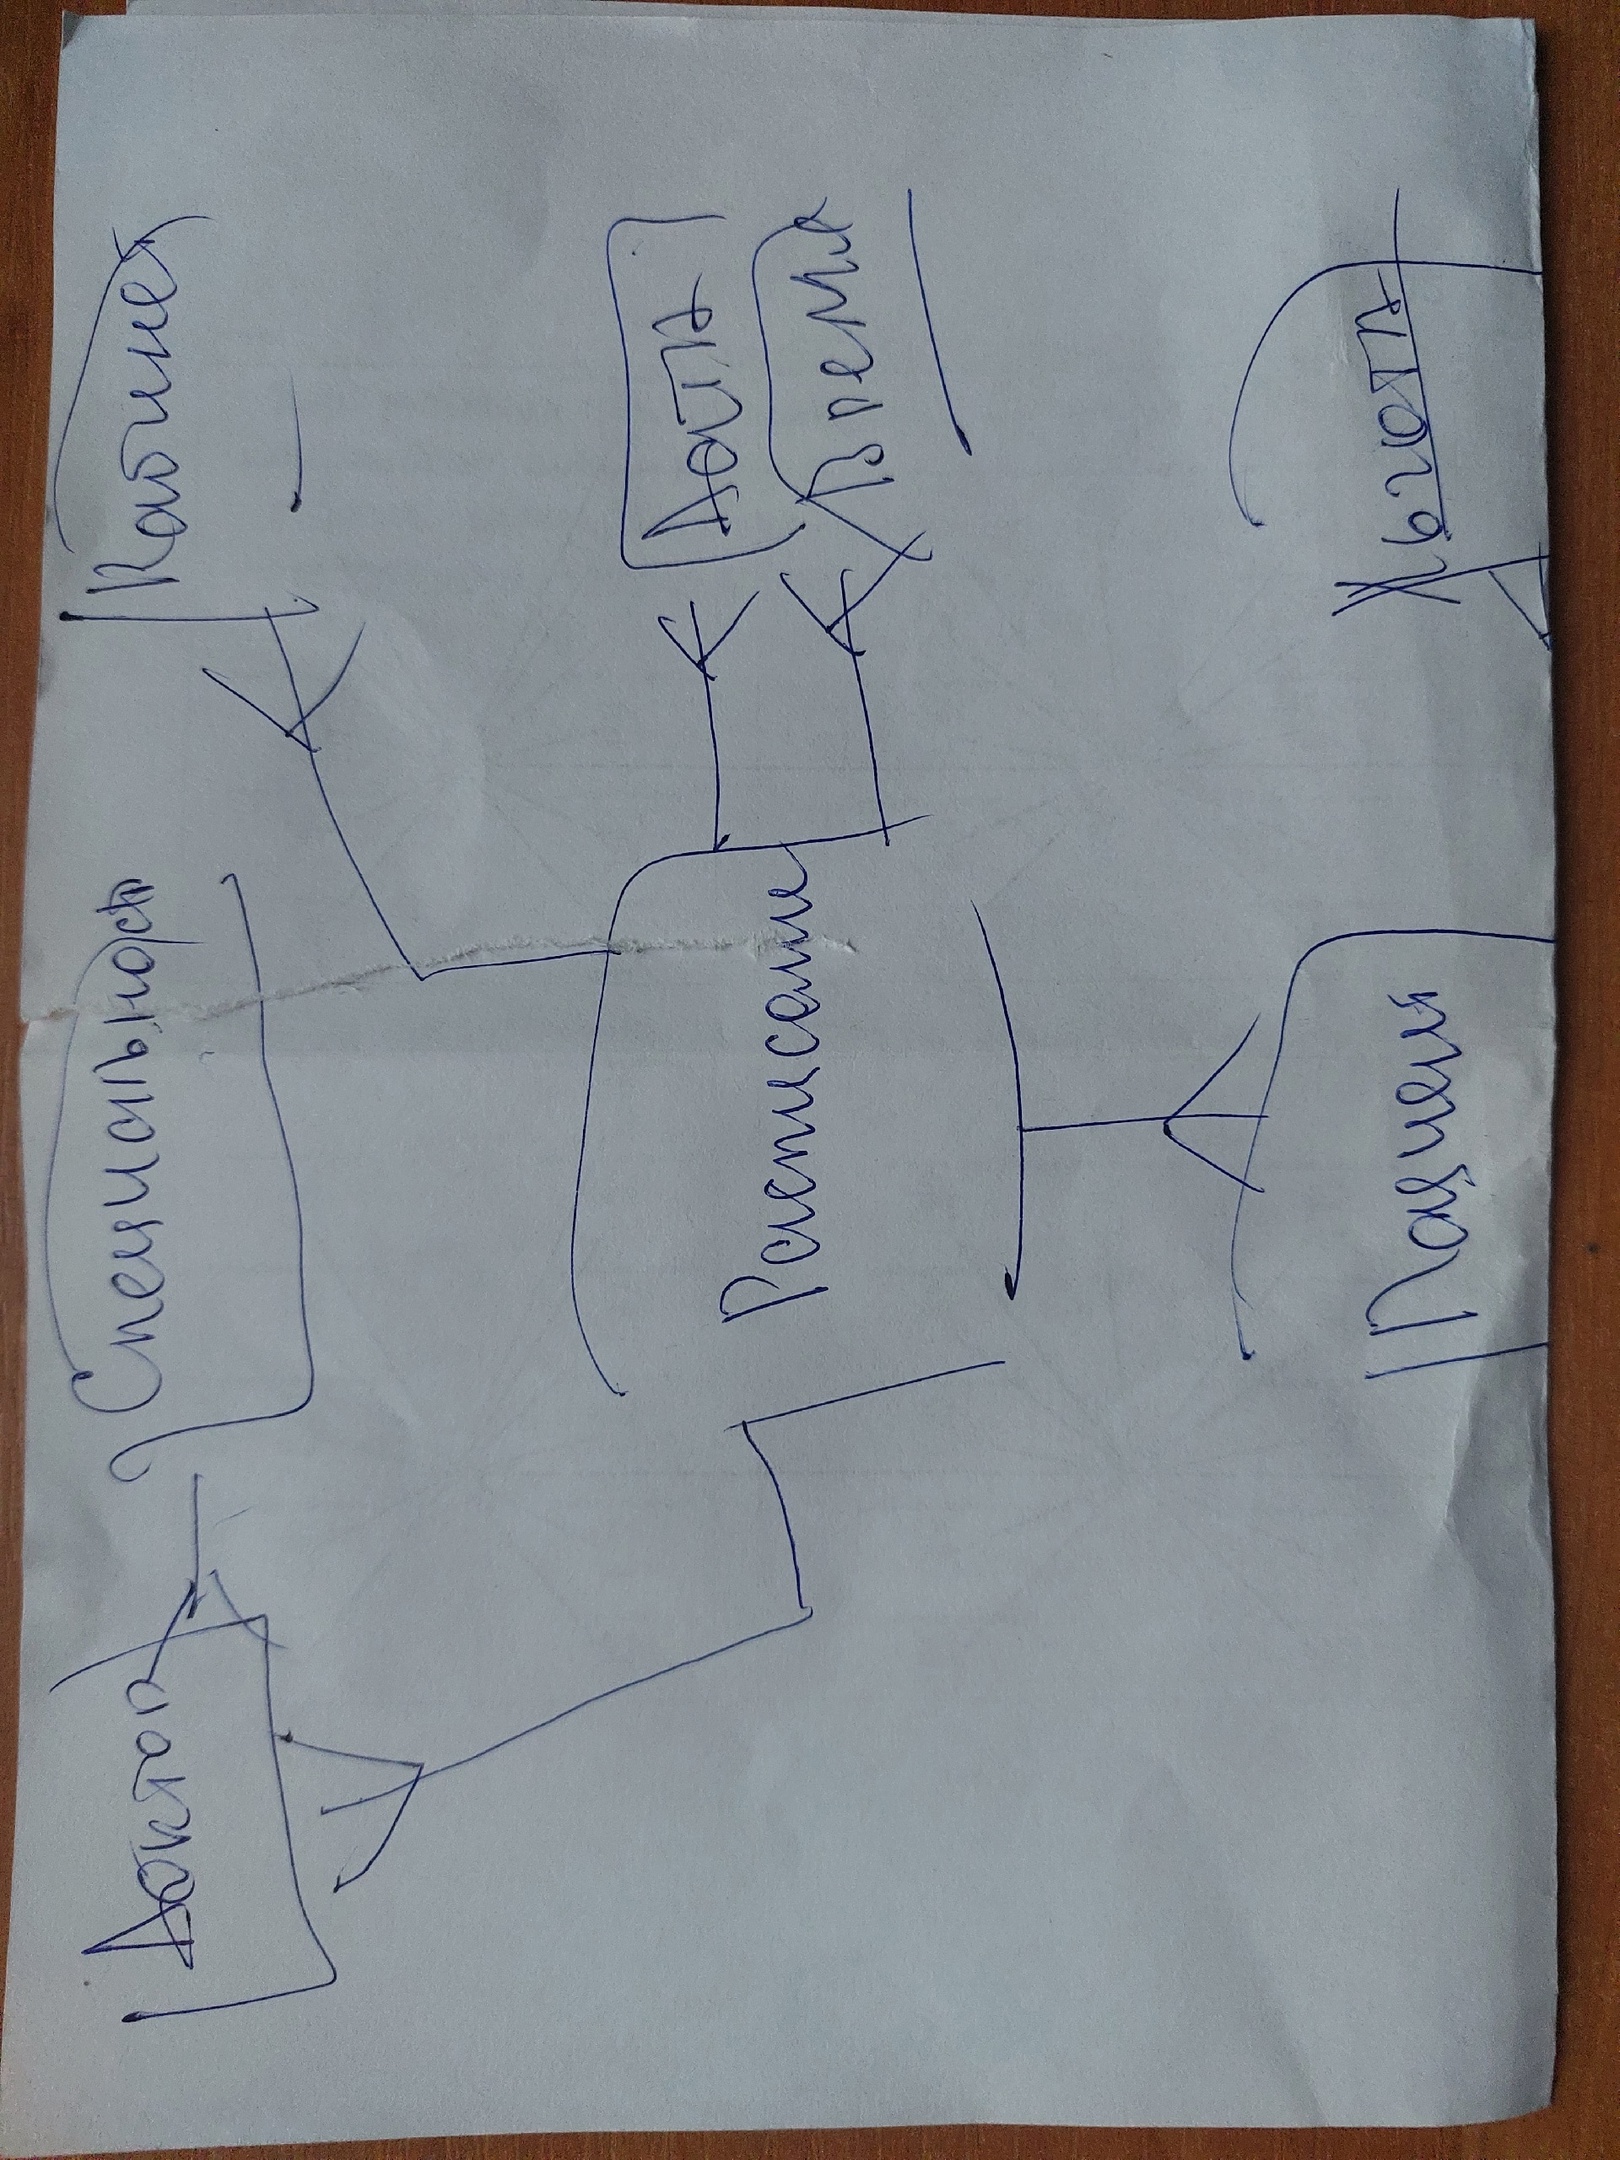 Доктор
Специальность
Кабинет
Дата
Расписание
Время
Пациент
Льгота